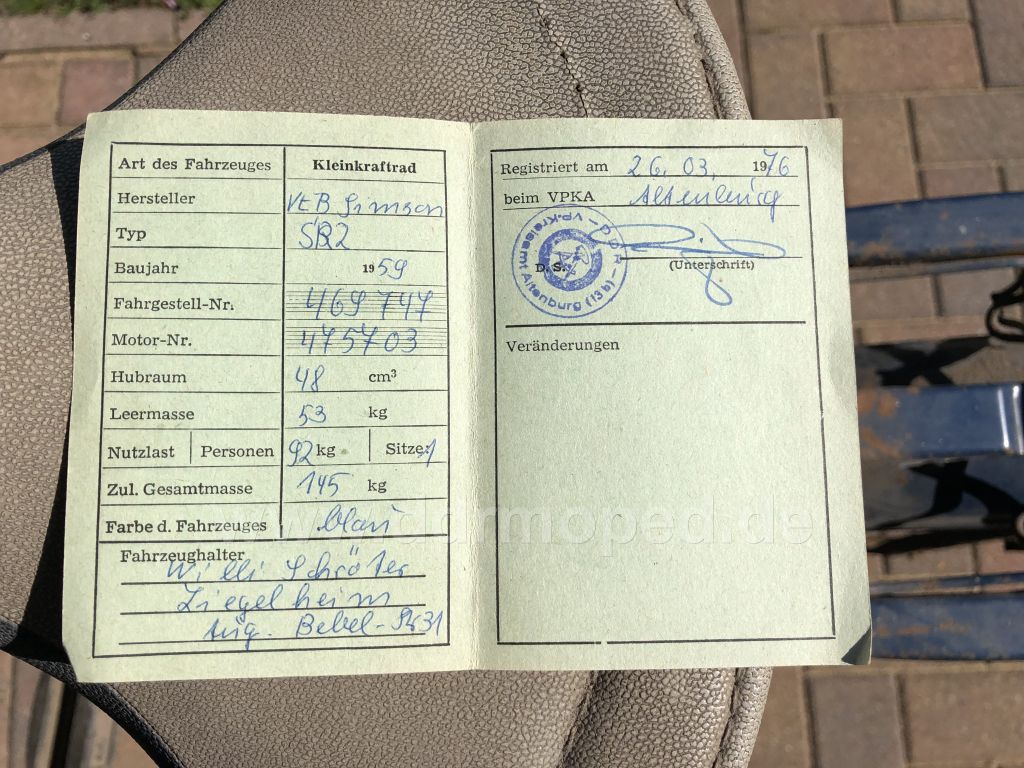 Art des Fahrzeuges Kleinkraftrad
Hersteller VEB Simson
Typ SR2
Baujahr 1959
Fahrgestell-Nr. 469747
Motor-Nr. 475703
Hubraum 48 cm³
Leermasse 53 kg
Nutzlast Personen 92 kg Sitze: 1
Zul. Gesamtmasse 145 kg
Farbe d. Fahrzeuges blau
Fahrzeughalter
Willi Schröter
Ziegelheim
Aug. Bebel-Str 31
Registriert am 26. 03. 1976
beim VPKA Altenburg
D. S. (Unterschrift)
VP-Kreisamt Altenburg (13b)
Veränderungen
www.ddrmoped.de